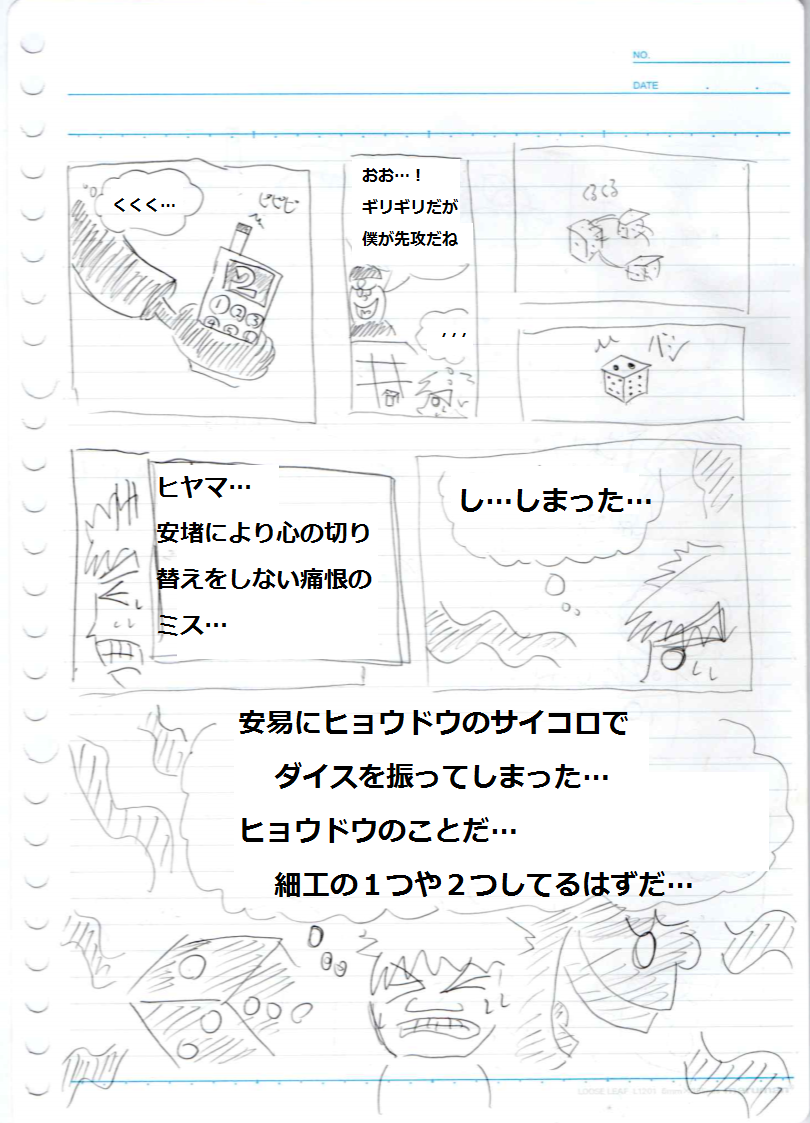 NO.
DATE
くるくる
おお…！
ギリギリだが
僕が先攻だね
くくく…
ピピピ
2
1 2 3
4 5 6
，，，
し…しまった…
ヒヤマ…
安堵により心の切り
替えをしない痛恨の
ミス…
安易にヒョウドウのサイコロで
ダイスを振ってしまった…
ヒョウドウのことだ…
細工の１つや２つしてるはずだ…